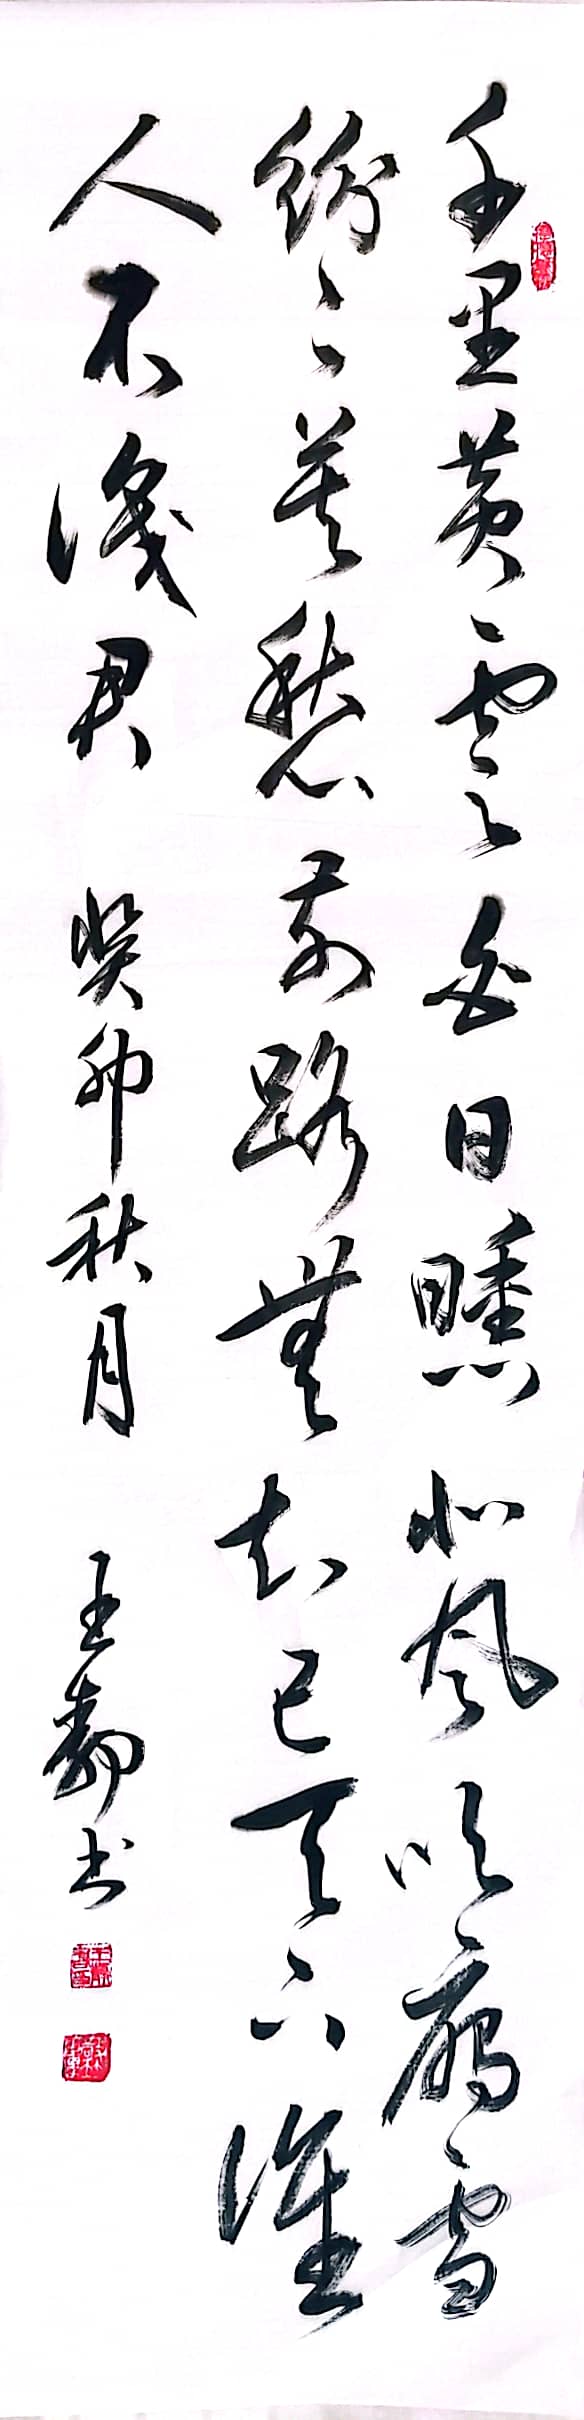 千里黄云白日曛北风吹雁雪
纷纷莫愁前路无知己天下谁
人不识君 癸卯秋月 王静书